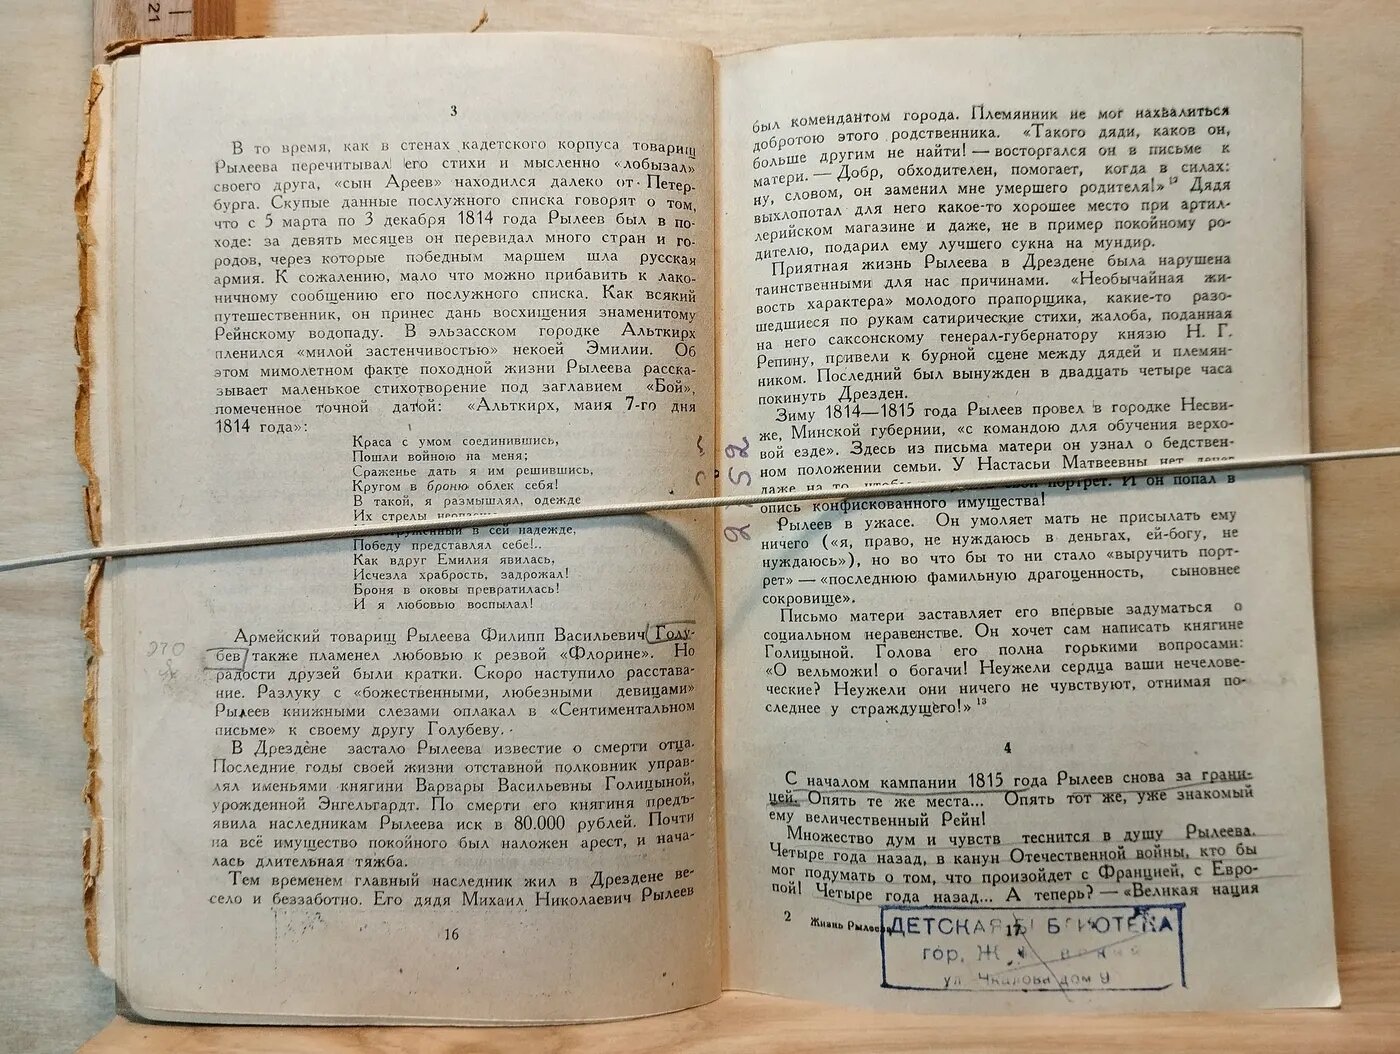 21
3
В то время, как в стенах кадетского корпуса товарищ
Рылеева перечитывал его стихи и мысленно «лобызал»
своего друга, «сын Ареев» находился далеко от Петер-
бурга. Скупые данные послужного списка говорят о том,
что с 5 марта по 3 декабря 1814 года Рылеев был в по-
ходе: за девять месяцев он перевидал много стран и го-
родов, через которые победным маршем шла русская
армия. К сожалению, мало что можно прибавить к лако-
ничному сообщению его послужного списка. Как всякий
путешественник, он принес дань восхищения знаменитому
Рейнскому водопаду. В эльзасском городке Альткирх
пленился «милой застенчивостью» некоей Эмилии. Об
этом мимолетном факте походной жизни Рылеева расска-
зывает маленькое стихотворение под заглавием «Бой»,
помеченное точной датой: «Альткирх, маия 7-го дня
1814 года»:
Краса с умом соединившись,
Пошли войною на меня;
Сраженье дать я им решившись,
Кругом в броню облек себя!
В такой, я размышлял, одежде
Их стрелы
в сей надежде,
Победу представлял себе!..
Как вдруг Емилия явилась,
Исчезла храбрость, задрожал!
Броня в оковы превратилась!
И я любовью воспылал!
Армейский товарищ Рылеева Филипп Васильевич Голу-
бев также пламенел любовью к резвой «Флорине». Но
радости друзей были кратки. Скоро наступило расстава-
ние. Разлуку с «божественными, любезными девицами»
Рылеев книжными слезами оплакал в «Сентиментальном
письме» к своему другу Голубеву.
В Дрездене застало Рылеева известие о смерти отца.
Последние годы своей жизни отставной полковник управ-
лял именьями княгини Варвары Васильевны Голицыной,
урожденной Энгельгардт. По смерти его княгиня предъ-
явила наследникам Рылеева иск в 80.000 рублей. Почти
на всё имущество покойного был наложен арест, и нача-
лась длительная тяжба.
Тем временем главный наследник жил в Дрездене ве-
село и беззаботно. Его дядя Михаил Николаевич Рылеев
16
был комендантом города. Племянник не мог нахвалиться
добротою этого родственника. «Такого дяди, каков он,
больше другим не найти! — восторгался он в письме к
матери. — Добр, обходителен, помогает, когда в силах:
ну, словом, он заменил мне умершего родителя!» Дядя
выхлопотал для него какое-то хорошее место при артил-
лерийском магазине и даже, не в пример покойному ро-
дителю, подарил ему лучшего сукна на мундир.
Приятная жизнь Рылеева в Дрездене была нарушена
таинственными для нас причинами. «Необычайная жи-
вость характера» молодого прапорщика, какие-то разо-
шедшиеся по рукам сатирические стихи, жалоба, поданная
на него саксонскому генерал-губернатору князю Н. Г.
Репину, привели к бурной сцене между дядей и племян-
ником. Последний был вынужден в двадцать четыре часа
покинуть Дрезден.
Зиму 1814—1815 года Рылеев провел в городке Несви-
же, Минской губернии, «с командою для обучения верхо-
вой езде». Здесь из письма матери он узнал о бедствен-
ном положении семьи. У Настасьи Матвеевны нет денег
даже на то, чтобы портрет. И он попал в
опись конфискованного имущества!
Рылеев в ужасе. Он умоляет мать не присылать ему
ничего («я, право, не нуждаюсь в деньгах, ей-богу, не
нуждаюсь»), но во что бы то ни стало «выручить порт-
рет» — «последнюю фамильную драгоценность, сыновнее
сокровище».
Письмо матери заставляет его впервые задуматься о
социальном неравенстве. Он хочет сам написать княгине
Голицыной. Голова его полна горькими вопросами:
«О вельможи! о богачи! Неужели сердца ваши нечелове-
ческие? Неужели они ничего не чувствуют, отнимая по-
следнее у страждущего!» 13
4
С началом кампании 1815 года Рылеев снова за грани-
цей. Опять те же места... Опять тот же, уже знакомый
ему величественный Рейн!
Множество дум и чувств теснится в душу Рылеева.
Четыре года назад, в канун Отечественной войны, кто бы
мог подумать о том, что произойдет с Францией, с Евро-
пой! Четыре года назад... А теперь? — «Великая нация
2 Жизнь Рылеева
17
ДЕТСКАЯ БИБЛИОТЕКА
гор.
ул. Чкалова дом 9